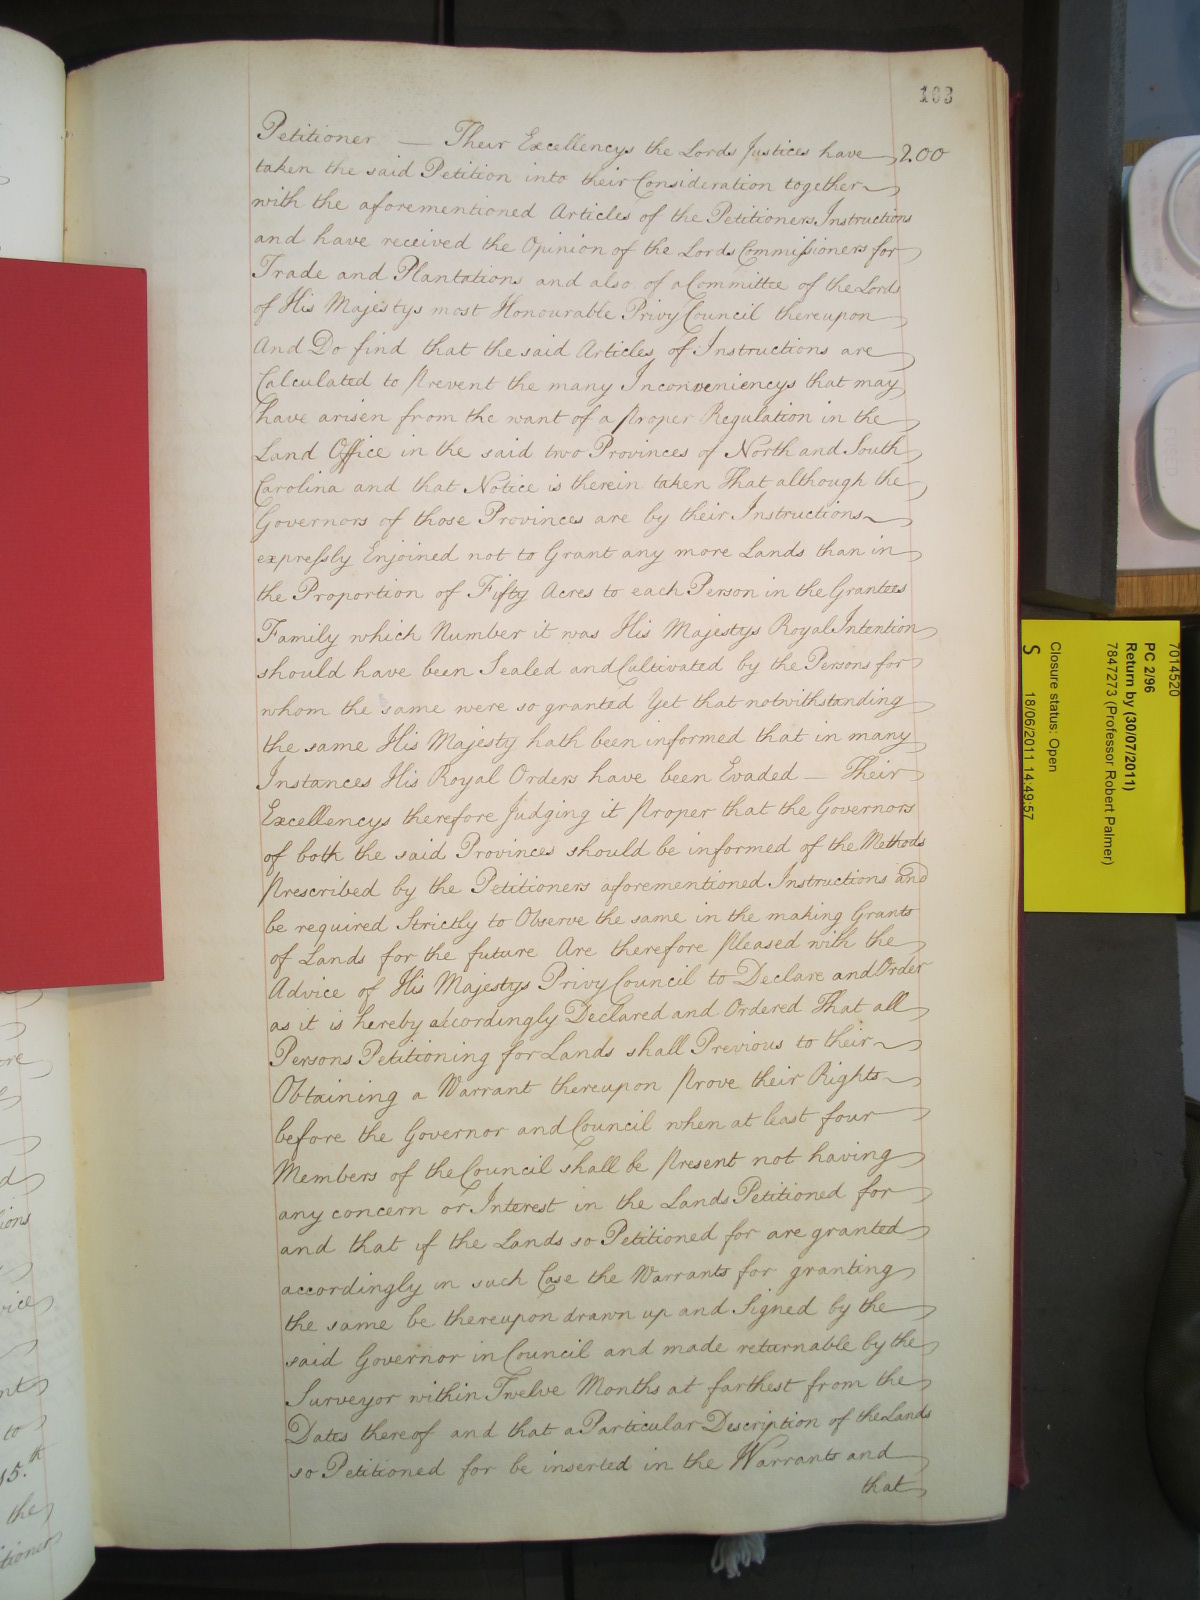 103
200
Petitioner — Their Excellencys the Lords Justices have
taken the said Petition into their Consideration together
with the aforementioned Articles of the Petitioners Instructions
and have received the Opinion of the Lords Commissioners for
Trade and Plantations and also of a Committee of the Lords
of His Majestys most Honourable Privy Council thereupon
And Do find that the said Articles of Instructions are
Calculated to prevent the many Inconveniencys that may
have arisen from the want of a proper Regulation in the
Land Office in the said two Provinces of North and South
Carolina and that Notice is therein taken That although the
Governors of those Provinces are by their Instructions
expressly Enjoined not to Grant any more Lands than in
the Proportion of Fifty Acres to each Person in the Grantees
Family which Number it was His Majestys Royal Intention
should have been Sealed and Cultivated by the Persons for
whom the same were so granted Yet that notwithstanding
the same His Majesty hath been informed that in many
Instances His Royal Orders have been Evaded — Their
Excellencys therefore Judging it proper that the Governors
of both the said Provinces should be informed of the Methods
prescribed by the Petitioners aforementioned Instructions and
be required Strictly to Observe the same in the making Grants
of Lands for the future Are therefore pleased with the
Advice of His Majestys Privy Council to Declare and Order
as it is hereby accordingly Declared and Ordered That all
Persons Petitioning for Lands shall Previous to their
Obtaining a Warrant thereupon prove their Rights
before the Governor and Council when at least four
Members of the Council shall be present not having
any concern or Interest in the Lands Petitioned for
and that if the Lands so Petitioned for are granted
accordingly in such Case the Warrants for granting
the same be thereupon drawn up and Signed by the
said Governor in Council and made returnable by the
Surveyor within Twelve Months at farthest from the
Dates thereof and that a Particular Description of the Lands
so Petitioned for be inserted in the Warrants and
that
7014520
PC 2/96
Return by (30/07/2011)
7847273 (Professor Robert Palmer)
Closure status: Open
S 18/06/2011 14:49:57
to
15.th
the